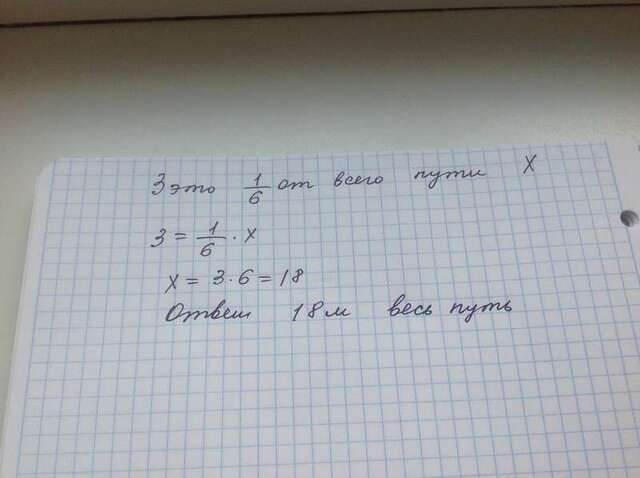 3 это 1/6 от всего пути X
3 = 1/6 · x
x = 3·6 = 18
Ответ 18м весь путь